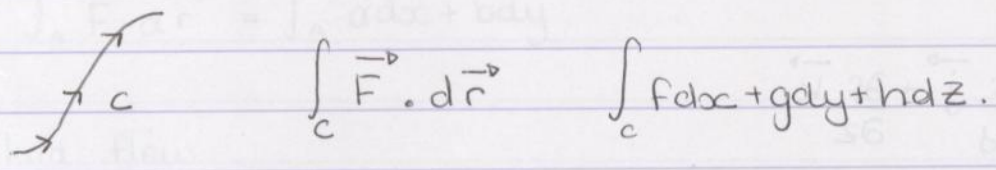 C ∫_C F⃗ . dr⃗ ∫_C fdx+gdy+hdz.